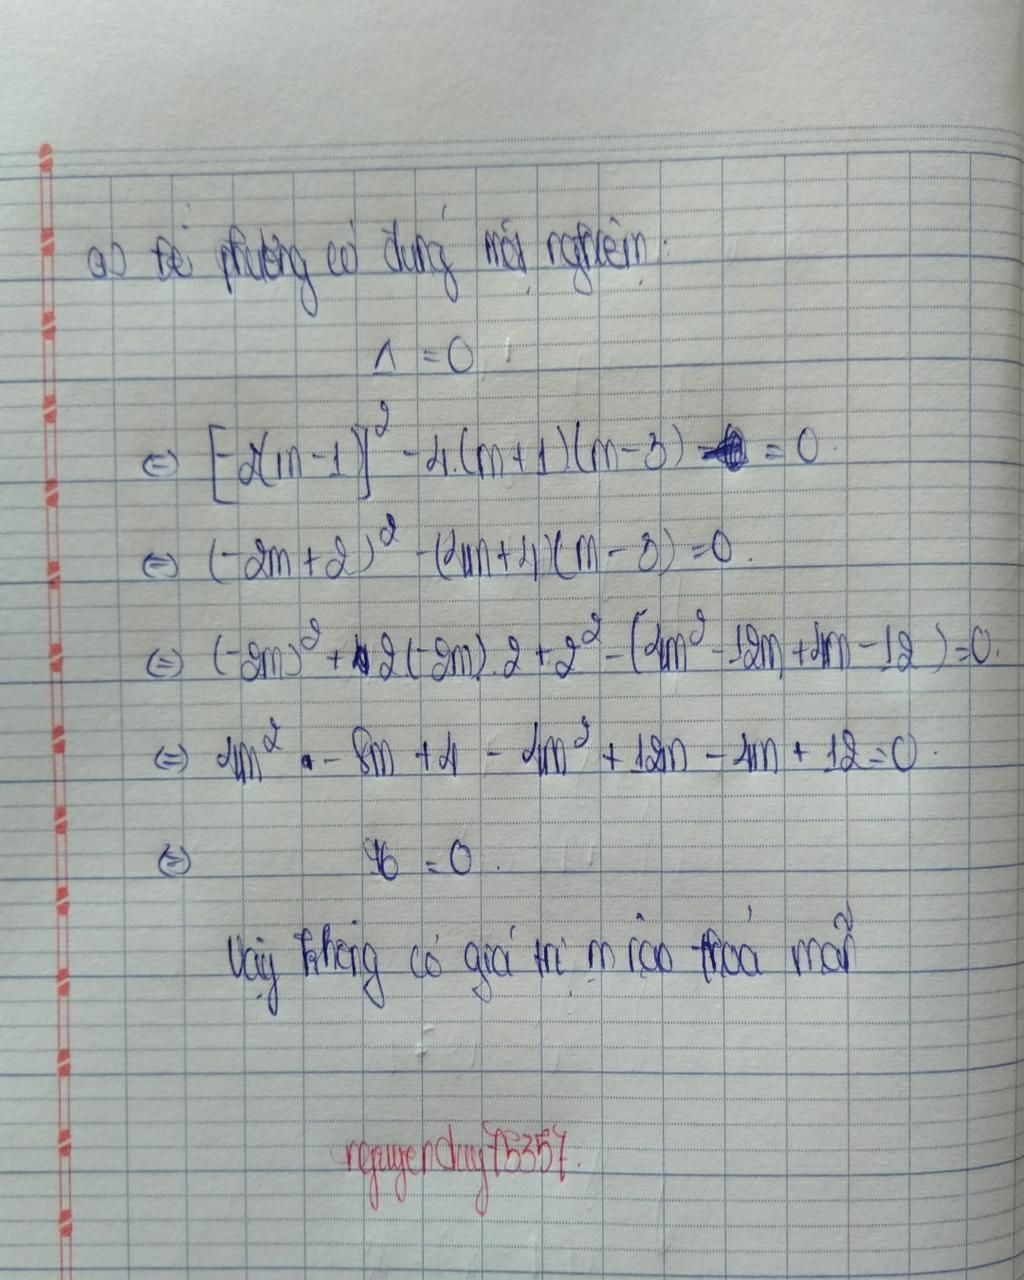 a) Để phương có đúng một nghiệm:
Δ = 0
⇔ [-2(m-1)]² - 4.(m+1)(m-3) = 0.
⇔ (-2m+2)² - (4m+4)(m-3) = 0.
⇔ (-2m)² + 2(-2m).2 + 2² - (4m² - 12m + 4m - 12) = 0.
⇔ 4m² - 8m + 4 - 4m² + 12m - 4m + 12 = 0.
⇔ 16 = 0.
Vậy không có giá trị m nào thoả mãn
nguyenduy75357.